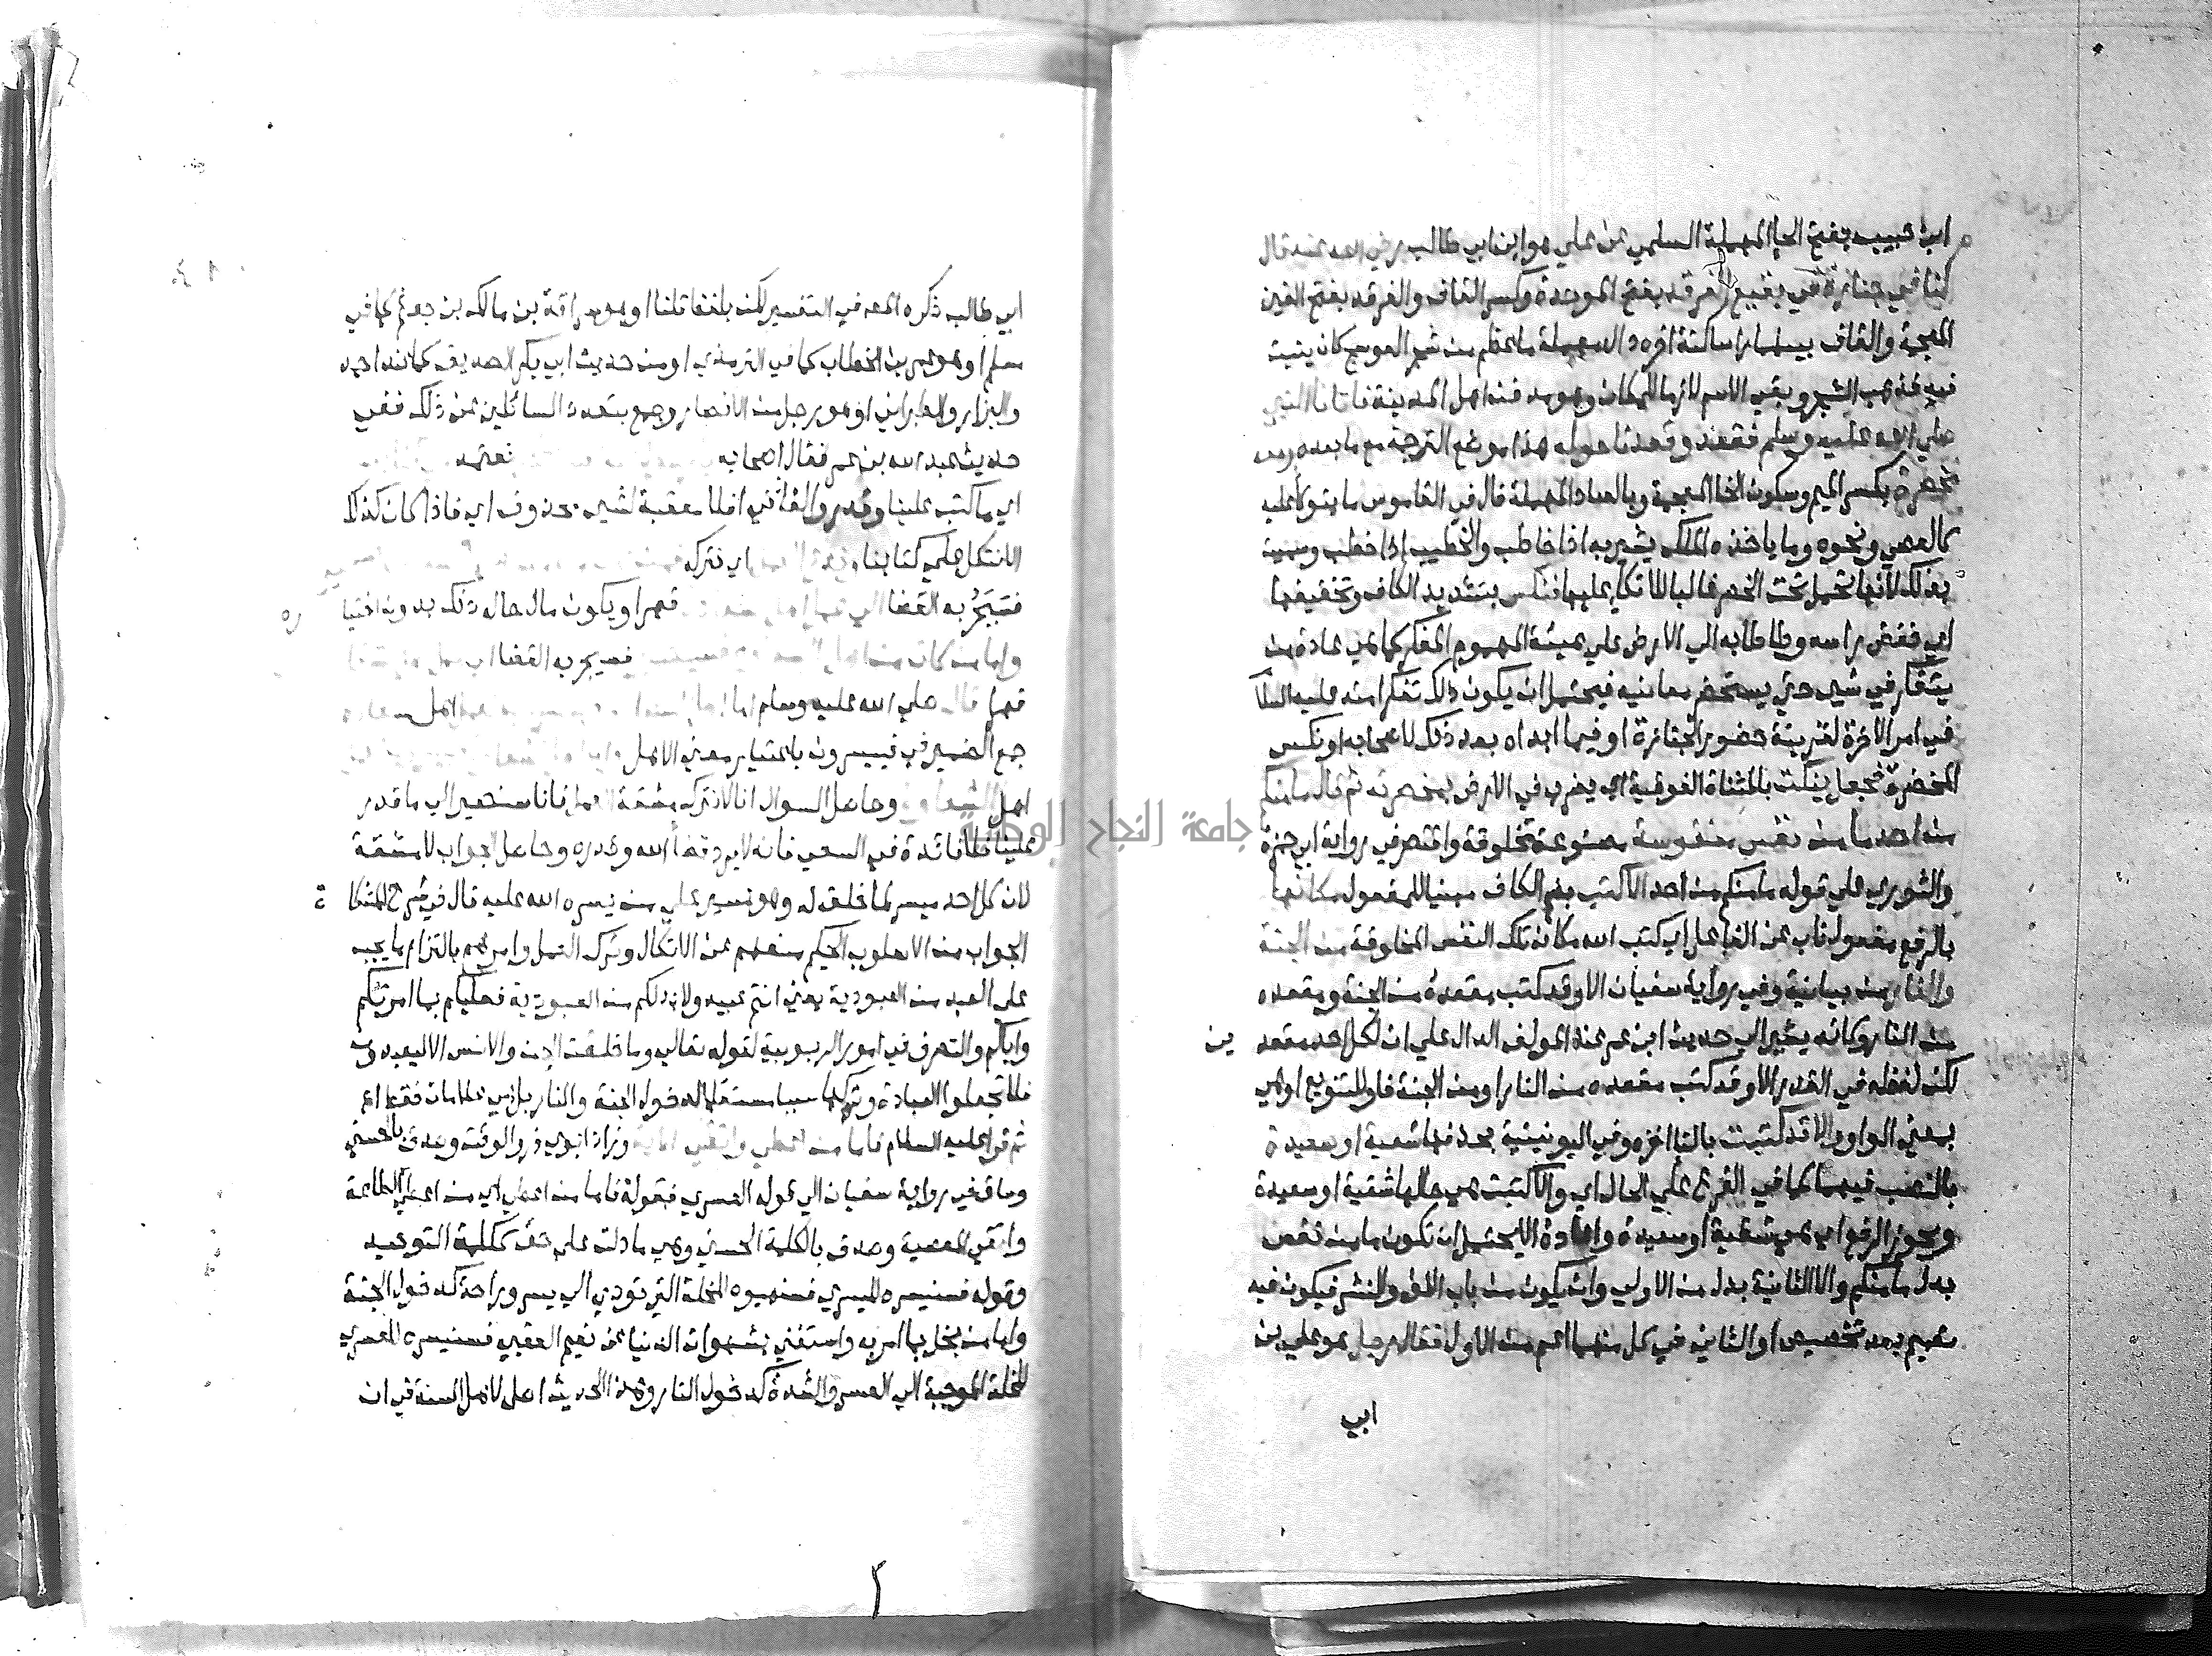 ابن حبيب بفتح الحا المهملة السلمي عن علي هو ابن ابي طالب رضي الله عنه قال
كنا في جنازة في بقيع الغرقد بفتح الموحدة وكسر القاف والغرقد بفتح الغين
المعجمة والقاف بينهما را ساكنة اخره دال مهملة ما عظم من شجر العوسج كان ينبت
فيه فذهب الشجر وبقي الاسم لازما للمكان وهو مدفن اهل المدينة فاتانا النبي
صلي الله عليه وسلم فقعد وقعدنا حوله هذا موضع الترجمة مع ما بعده ومعه
مخصرة بكسر الميم وسكون الخا المعجمة وبالصاد المهملة قال في القاموس ما يتوكا عليه
كالعصي ونحوه وما ياخذه الملك يشير به اذا خاطب والخطيب اذا خطب وسميت
بذلك لانها تحمل تحت الخصر غالبا للاتكا عليها فنكس بتشديد الكاف وتخفيفها
اي خفض راسه وطاطا به الي الارض علي هيئة المهموم المفكر كما هي عادة من
يتفكر في شي حتي يستحضر معانيه فيحتمل ان يكون ذلك تفكرا منه عليه السلا
في امر الاخرة لقرينة حضور الجنازة او فيما ابداه بعد ذلك لاصحابه او نكس
المخصرة فجعل ينكت بالمثناة الفوقية اي يضرب في الارض بمخصرته ثم قال ما منكم
من احد ما من نفس منفوسة مصنوعة مخلوقة واقتصر في رواية ابي حمزة
والثوري علي قوله ما منكم من احد الا كتب بضم الكاف مبنيا للمفعول مكانها
بالرفع مفعول ناب عن الفاعل اي كتب الله مكان تلك النفس المخلوقة من الجنة
والنار من بيانية وفي رواية سفيان الا وقد كتب مقعده من الجنة ومقعده
من النار وكانه يشير الي حديث ابن عمر عند المولف الدال علي ان لكل احد مقعد ين
لكن لفظه في القدر الا وقد كتب مقعده من النار او من الجنة فاو للتنويع او هي
بمعني الواو والا قد كتبت بالتا اخره وفي اليونينية بحذفها شقية او سعيدة
بالنصب فيهما كما في الفرع علي الحال اي والا كتبت هي حالها شقية او سعيدة
ويجوز الرفع اي هي شقية او سعيدة واعادة الا يحتمل ان تكون ما من نفس
بدل ما منكم والا الثانية بدل من الاولي وان يكون من باب اللف والنشر فيكون فيه
تعميم بعد تخصيص او الثاني في كل منهما اعم من الاول فقال رجل هو علي بن
ابي
ابي طالب ذكره المص في التفسير لكن بلفظ قلنا او هو سراقة بن مالك بن جعشم كما في
مسلم او هو عمر بن الخطاب كما في الترمذي او من حديث ابي بكر الصديق كما عند احمد
والبزار والطبراني او هو رجل من الانصار وجمع بتعدد السائلين عن ذلك ففي
حديث عبد الله بن عمر فقال اصحابه نعتمد
اي ما كتب علينا وقدر والفا في افلا معقبة لشي محذوف اي فاذا كان كذلك
لا نتكل علي كتابنا اي نترك
فسيجره القضا الي قهرا ويكون مال حاله ذلك بدون اختيا ره
واما من كان من فسيجره القضا
قهرا قال صلي الله عليه وسلم اما اهل
جمع الضمير في فييسرون باعتبار معني الاهل
اهل وحاصل السوال انا لا نترك مشقة العمل فانا سنصير الي ما قدر
علينا فلا فائدة في السعي فانه لا يرد قضا الله وقدره وحاصل الجواب لا مشقة
لان كل احد ميسر لما خلق له وهو يسير علي من يسره الله عليه قال في شرح المشكا ة
الجواب من الاسلوب الحكيم منعهم عن الاتكال وترك العمل وامرهم بالتزام ما يجب
علي العبد من العبودية يعني انتم عبيد ولا بد لكم من العبودية فعليكم بما امرتكم
واياكم والتصرف في امور الربوبية لقوله تعالي وما خلقت الجن والانس الا ليعبدون
فلا تجعلوا العبادة وتركها سببا مستقلا لدخول الجنة والنار بل هي علامات فقط اه
ثم قرا عليه السلام فاما من اعطي واتقي الاية وزاد ابوي ذر والوقت وصدق بالحسني
وساق في رواية سفيان الي قوله العسري فقوله فاما من اعطي اي من اعطي الطاعة
واتقي المعصية وصدق بالكلمة الحسني وهي ما دلت علي حق ككلمة التوحيد
وقوله فسنيسره لليسري فسنهيوه للخلة التي تودي الي يسر وراحة كدخول الجنة
واما من بخل بما امر به واستغني بشهوات الدنيا عن نعيم العقبي فسنيسره للعسري
للخلة الموجبة الي العسر والشدة كدخول النار وهذا الحديث اصل لاهل السنة في ان
جامعة النجاح الوطنية